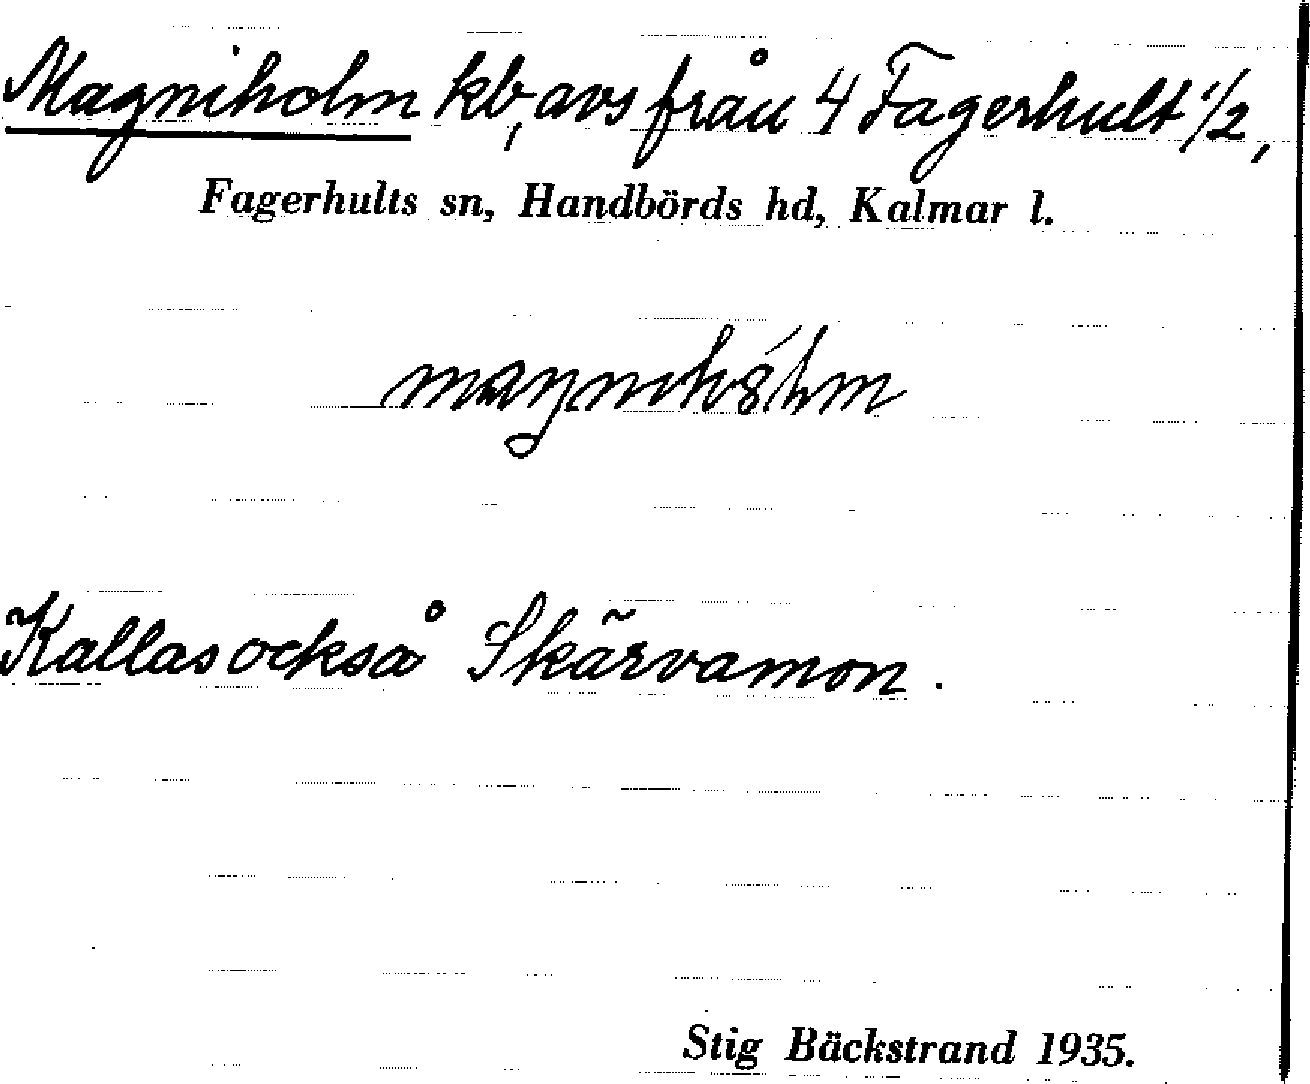 Magniholm kb, avs från 4 Fagerhult 1/2,
Fagerhults sn, Handbörds hd, Kalmar l.
Kallas också Skärvamon.
Stig Bäckstrand 1935.